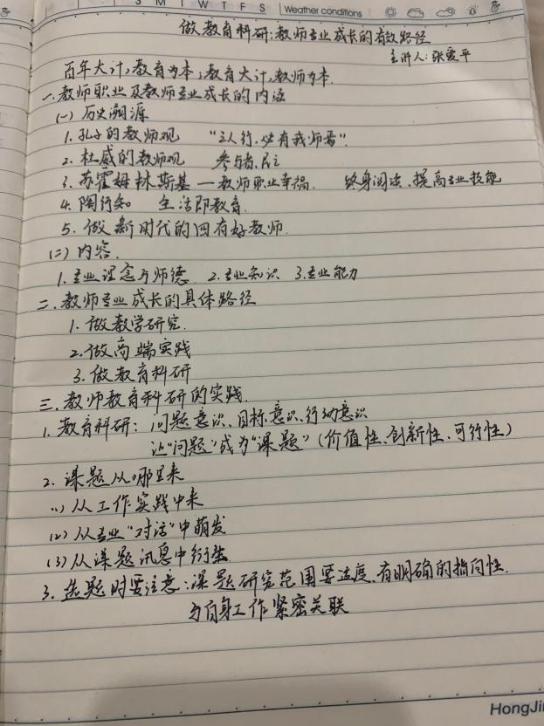 M T W T F S
Weather conditions
做教育科研:教师专业成长的有效路径
主讲人:张爱平
百年大计,教育为本;教育大计,教师为本.
一.教师职业及教师专业成长的内涵
(一)历史溯源
1.孔子的教师观 "三人行,必有我师焉".
2.杜威的教师观 参与者、民主
3.苏霍姆林斯基—教师职业幸福. 终身阅读、提高专业技能
4.陶行知 生活即教育
5.做新时代的四有好教师.
(二)内容.
1.专业理念与师德 2.专业知识 3.专业能力
二.教师专业成长的具体路径
1.做教学研究.
2.做高端实践
3.做教育科研
三.教师教育科研的实践.
1.教育科研:问题意识、目标意识、行动意识
让"问题"成为"课题"(价值性、创新性、可行性)
2.课题从哪里来
(1)从工作实践中来
(2)从专业"对话"中萌发
(3)从课题讯息中衍生
3.选题时要注意:课题研究范围要适度、有明确的指向性.
与自身工作紧密关联
HongJi